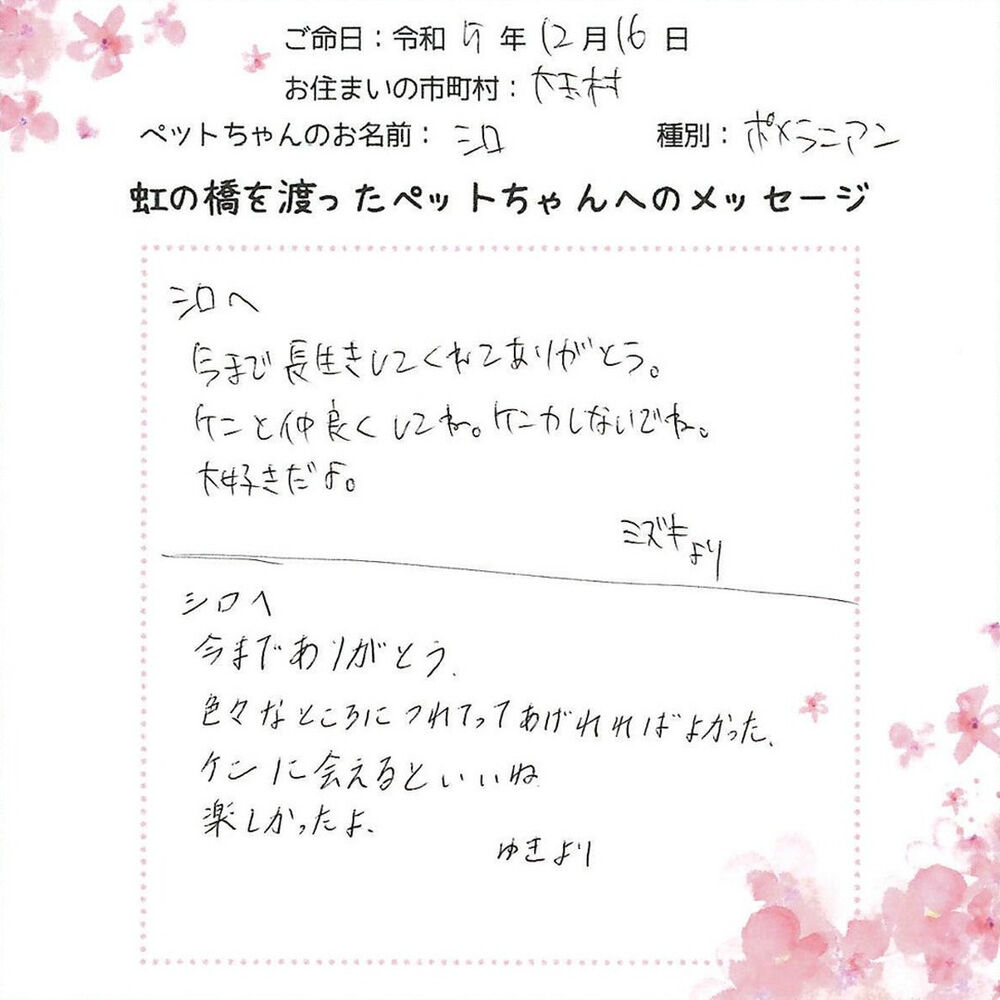 ご命日：令和 5 年 12月16 日
お住まいの市町村：大玉村
ペットちゃんのお名前：シロ 種別：ポメラニアン
虹の橋を渡ったペットちゃんへのメッセージ
シロへ
今まで長生きしてくれてありがとう。
ケンと仲良くしてね。ケンカしないでね。
大好きだよ。
ミズキより
シロへ
今までありがとう、
色々なところにつれてってあげれればよかった、
ケンに会えるといいね
楽しかったよ、
ゆきより